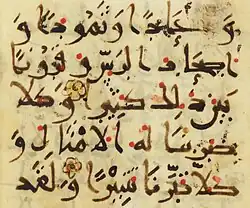 و عادا و ثمودا و
اصحاب الرس و قرونا
بين ذلك كثيرا و كلا
ضربنا له الامثال و
كلا تبرنا تتبيرا و لقد